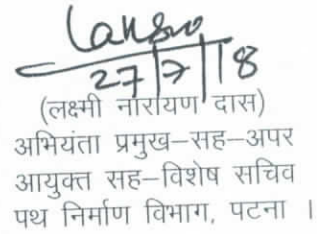 27/7/18
(लक्ष्मी नारायण दास)
अभियंता प्रमुख–सह–अपर
आयुक्त सह–विशेष सचिव
पथ निर्माण विभाग, पटना ।